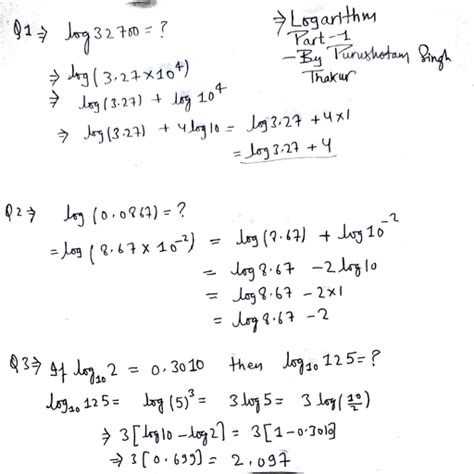 Q1⇒ log 32700 = ?
⇒ Logarithm
Part-1
- By Purushotam Singh
Thakur
⇒ log(3.27×10⁴)
⇒ log(3.27) + log 10⁴
⇒ log(3.27) + 4log10 = log3.27 + 4×1
= log3.27 + 4
Q2⇒ log(0.0867) = ?
= log(8.67 × 10⁻²) = log(8.67) + log10⁻²
= log8.67 - 2log10
= log8.67 - 2×1
= log8.67 - 2
Q3⇒ If log₁₀2 = 0.3010 then log₁₀125 = ?
log₁₀125 = log(5)³ = 3log5 = 3log(10/2)
⇒ 3[log10 - log2] = 3[1-0.3010]
⇒ 3[0.699] = 2.097